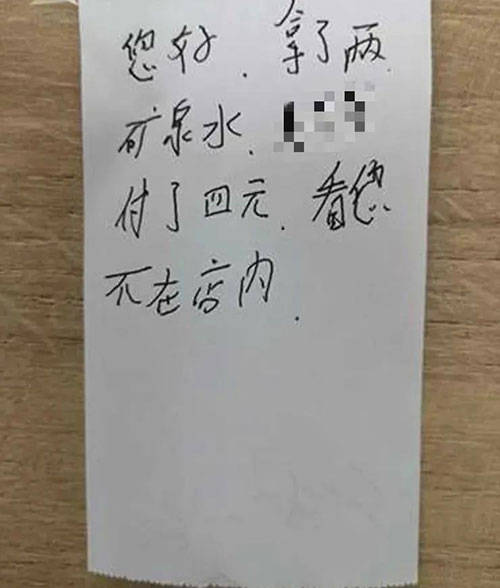 您好、拿了两
矿泉水、
付了四元、看您
不在店内.